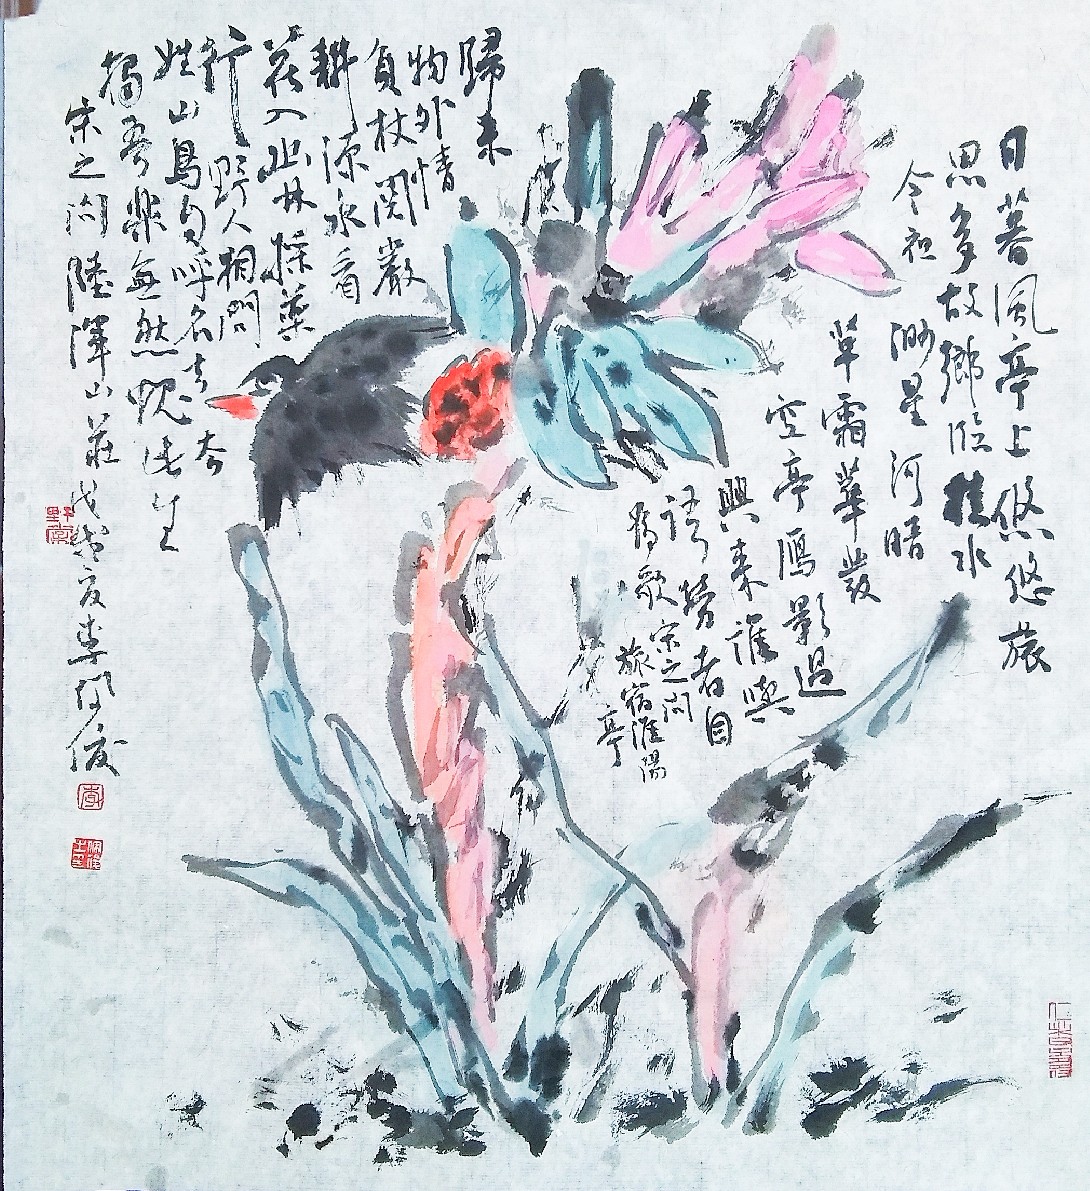 日暮風亭上悠悠旅
思多故鄉臨桂水
今夜渺星河暗
草霜華發
空亭鴈影過
興来誰與
語勞者自
為歌宋之问
旅宿淮陽
亭
歸来
物外情
負杖閱巖
耕源水看
花入幽林採藥
行野人相問
姓山鳥自呼名去去
獨吾樂無然愧此生
宋之问陸渾山莊戊戌夏李
李